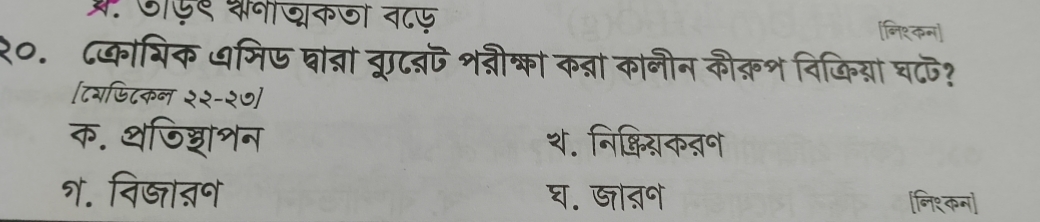 ঘ. তাড়িৎ ঋণাত্মকতা বাড়ে
[লিংকন]
২০. ক্রোমিক এসিড দ্বারা ব্যুরেট পরীক্ষা করা কালীন কীরূপ বিক্রিয়া ঘটে?
[মেডিকেল ২২-২৩]
ক. প্রতিস্থাপন খ. নিষ্ক্রিয়করণ
গ. বিজারণ ঘ. জারণ [লিংকন]